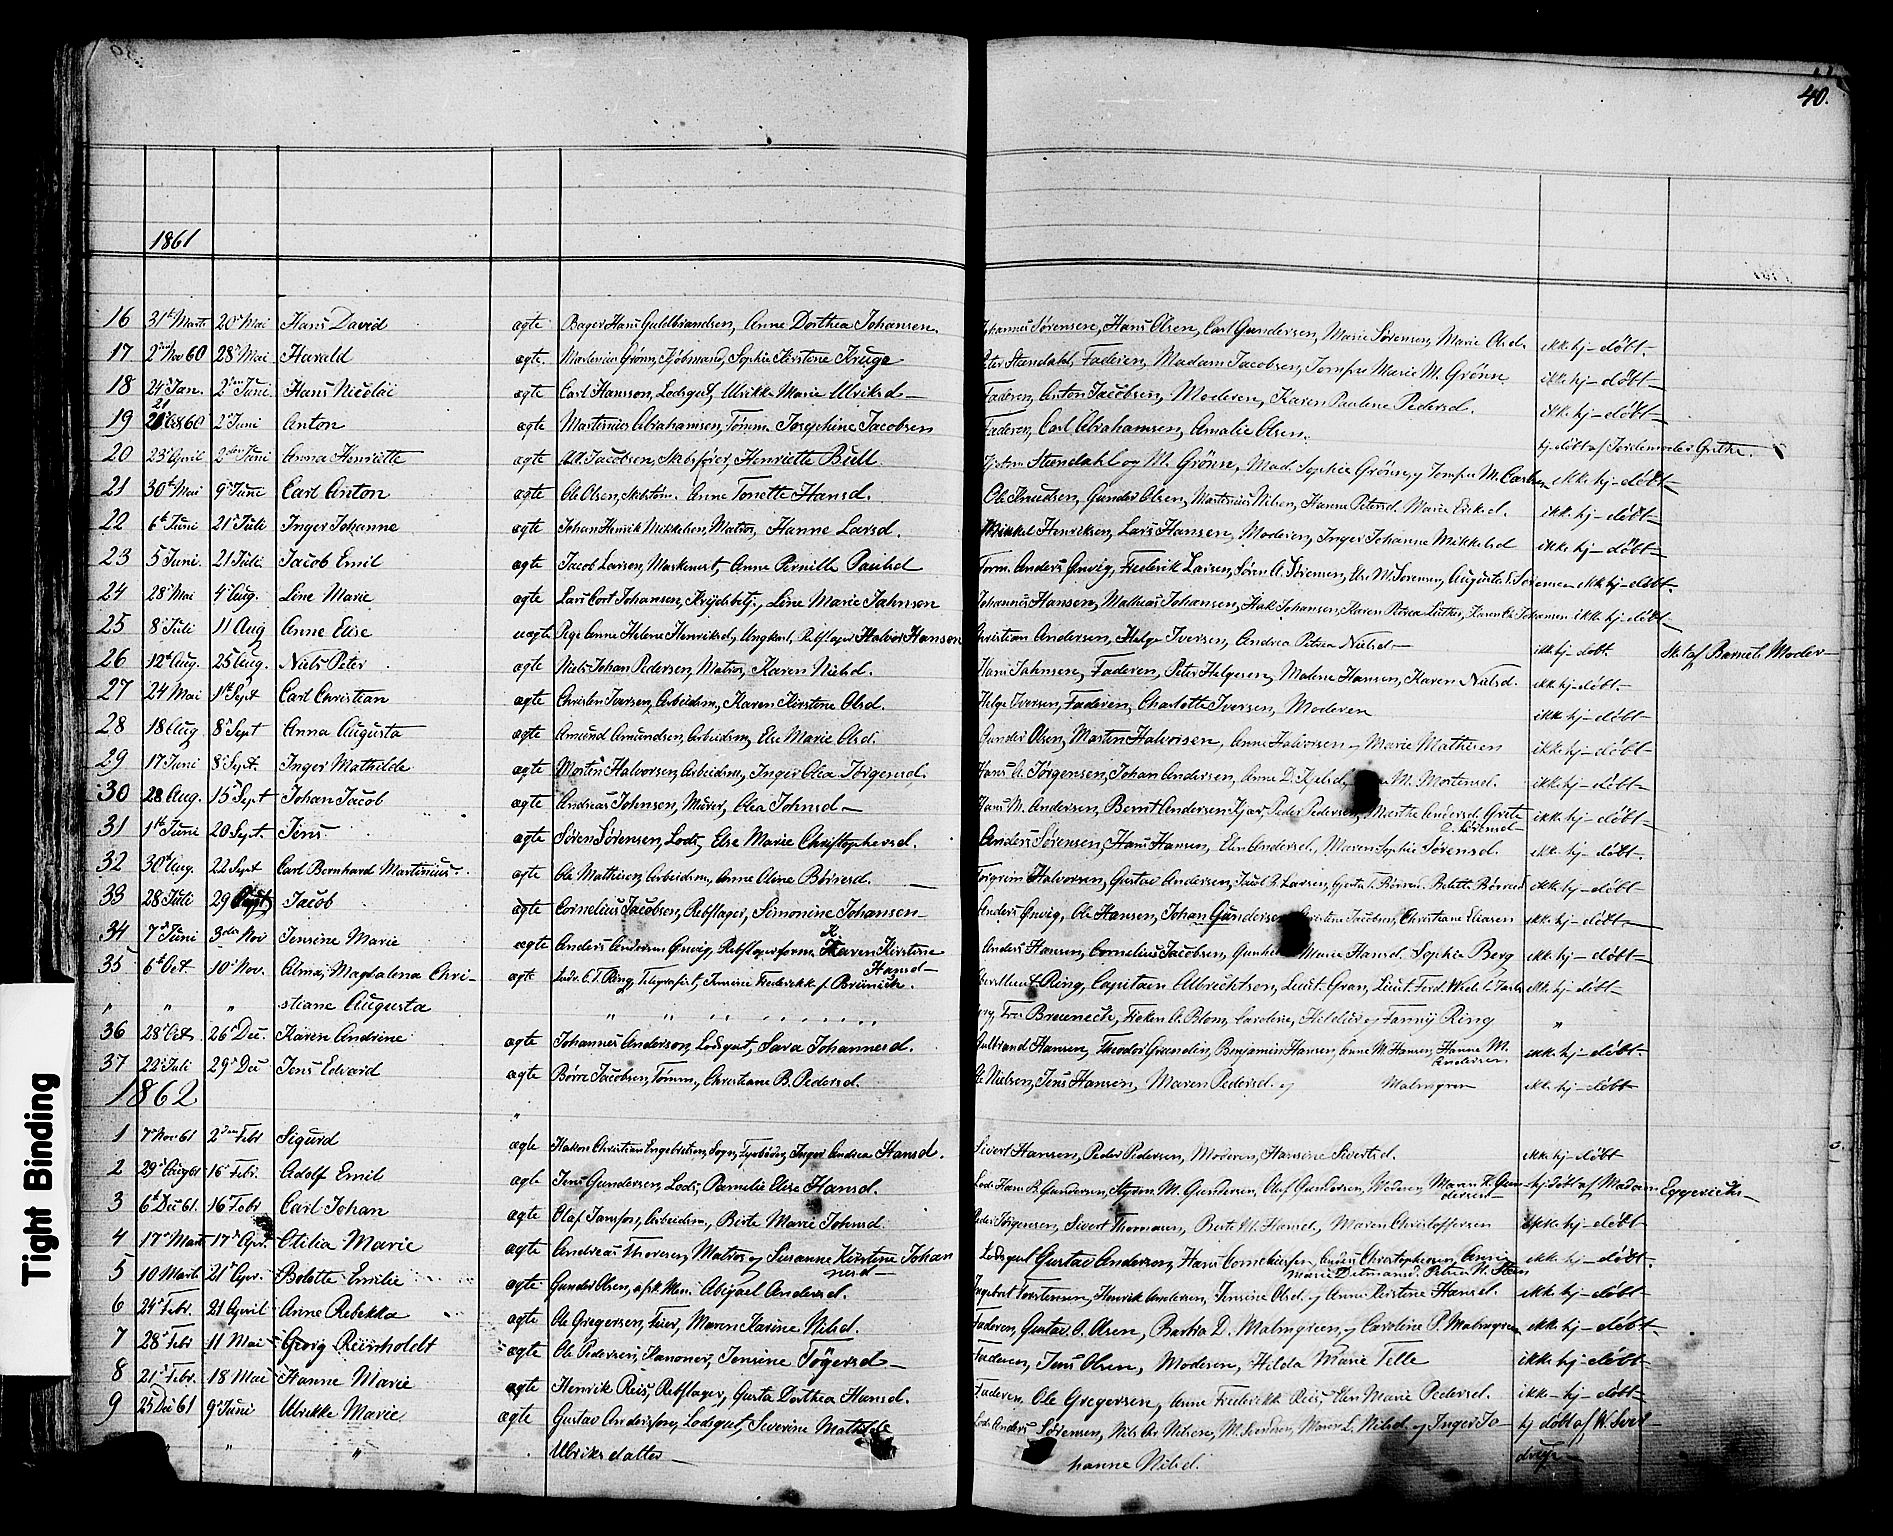 40.
1861
16 31t Marts 20d Mai Hans David ægte Bager Hans Guldbrandsen, Anne Dorthea Johansen Johannes Sørensen, Hans Olsen, Carl Gundersen, Marie Sørensen, Marie Olsd. ikke hj-døbt-
17 2d Nov 60 28d Mai Harald ægte Martinius Grønn, Kjøbmand, Sophie Kirstine Kruge Peter Stendahl, Faderen, Madam Jacobsen, Jomfru Marie M. Grønn ikke hj-døbt-
18 24d Jan. 2den Juni Hans Nicolai ægte Carl Hansson, Lodsgut, Ulrikke Marie Ulriksd- Faderen, Anton Jacobsen, Moderen, Karen Pauline Pedersd. ikke hj-døbt-
21
19 60 2d Juni Anton ægte Martinius Abrahamsen, Tømm. Josephine Jacobsen Faderen, Carl Abrahamsen, Amalie Olsen. hj. døbt af Jordemoder Grethe.
20 23d April 2den Juni Anna Henriette ægte Jacobsen, Skibsfører, Henriette Bull. Stendahl og M. Grønn, Mad. Sophie Grønn, Jomfru M. Carlsen ikke hj-døbt-
21 30t Mai 9d Juni Carl Anton ægte Ole Olsen, Skibstøm. Anne Tonette Hansd. Ole Knudsen, Gunder Olsen, Martinius Nilsen, Hanne Petersd. Marie Eriksd. ikke hj-døbt-
22 6t Juni 21d Juli Inger Johanne ægte Johan Henrik Mikkelsen, Matros, Hanne Larsd. Mikkel Henriksen, Lars Hansen, Moderen, Inger Johanne Mikkelsd ikke hj-døbt-
23 5d Juni. 21 Juli Jacob Emil ægte Jacob Larsen, Maskenist, Anne Pernille Paulsd Anders Qnvig, Frederik Larsen, Søren A. Sørensen, Else M. Sørensen, Augusta Sørensen ikke hj-døbt-
24 28d Mai 4d Aug. Line Marie ægte Lars Cort Johansen, Krydsbetj., Line Marie Jahnson Johannes Hansen, Mathias Johansen, Johansen, Maren Luther, Karen Johansen ikke hj-døbt-
25 8d Juli 11 Aug Anne Elise uægte Pige Anne Helene Henriksd, Ungkarl, Rebslager Halvor Hanson Christian Andersen, Helge Iversen, Andrea Petrea Nielsd- ikke hj-døbt. Sk. af Barnets Moder-
26 12t Aug. 25 Aug. Niels Peter ægte Niels Johan Pedersen, Matros, Karen Nielsd. Hans Jahnsen, Faderen, Peter Helgesen, Malene Hansen, Karen Nielsd. ikke hj-døbt.-
27 24 Mai 1st Sept Carl Christian ægte Christen Iversen, Arbeidsm, Karen Kirstine Olsd. Helge Iversen, Faderen, Charlotte Iversen, Moderen ikke hj-døbt-
28 18 Aug 8d Sept Anna Augusta ægte Amund Amundsen, Arbeidsm, Else Marie Olsd. Gunder Olsen, Martin Halvorsen, Anne Halvorsen, Marie Mathisen ikke hj-døbt-
29 17 Juni 8d Sept. Inger Mathilde ægte Morten Halvorsen, Arbeidsm, Inger Olea Jørgensd. Hans A. Jørgensen, Johan Andersen, Anne D. Kjelsd, M. Mortensd. ikke hj-døbt-
30 28 Aug. 15d Sept Johan Jacob ægte Andreas Johnson, Murer, Olea Johnsd- Hans M. Andersen, Bernt Andersen Kjær, Peder Pedersen, Marthe Andersd. Grete ikke hj-døbt-
D. Sørensd-
31 1st Juni 20 Sept. Jens ægte Søren Sørensen, Lods, Else Marie Christophersd. Anders Sørensen, Hans Hansen, Elen Andersd., Maren Sophie Sørensd. ikke hj-døbt-
32 30t Aug. 22 Sept Carl Bernhard Martinius. ægte Ole Mathisen, Arbeidsm., Anne Oline Børresd. Torgrim Halvorsen, Gustav Andersen, Larsen, Børresd. ikke hj-døbt-
33 28 Juli 29 Sept Jacob ægte Cornelius Jacobsen, Rebslager, Simonine Johansen- Anders Qnvig, Ole Hansen, Johan Gundersen, Jacobsen, Christiane Eliasen ikke hj-døbt-
34 7d Juni 3die Nov Jensine Marie ægte Anders Andersen Qnvig, Rebslagerform, Karen Kirstine Anders Hansen, Cornelius Jacobsen, Gunhild Marie Hansd. Sophie Berg ikke hj-døbt-
Hansd-
35 6t Oct. 10d Nov. Alma, Magdalena Chri- ægte C. T. Ring, Telegrafist, Jensine Frederikke f. Brünech. Ring, Capitain Albrechtson, Lieut. Gran, Lieut. Ferd. ikke hj-døbt-
" " " stiane Augusta " " " Fru Breunech, Frøken A. Blom, Caroline, Hildur og Fanny Ring "
36 28d Oct. 26d Dec. Karen Andrine ægte Johannes Anderson, Lodsgut, Sara Johannesd. Gulbrand Hansen, Theodor Grundin, Benjamin Hansen, Anne M. Hansen, Hanne M. ikke hj-døbt-
Andersen.
37 22d Juli 29d Dec Jens Edvard ægte Børre Jacobsen, Tømm., Christiane B. Pedersd. Ole Nielsen, Jens Hansen, Maren Pedersd. og Malmgren ikke hj-døbt
1862
1 7d Nov 61 2den Febr Sigurd ægte Hakon Christian Engebretsen, Fyrbøder, Inger Andrea Hansd. Sivert Hansen, Peder Pedersen, Moderen, Hansine Sivertsd. ikke hj-døbt
2 29d Aug 61 16d Febr. Adolf Emil ægte Jens Gundersen, Lods, Pamelie Elise Hansd. Lods Hans B. Gundersen, Styrm M. Gundersen, Oluf Gundersen, Moderen, Maren K. Gun- hj døbt af Madam Eggerichs-
dersen-
3 6t Dec 61. 16 Febr Carl Johan ægte Olaf Jansson, Arbeidsm, Birte Marie Johnsd. Peder Jørgensen, Sivert Thomasen, Berte M. Hansd., Maren Christoffersen ikke hj-døbt-
4 17d Marts 17d Apr. Otilia Marie ægte Andreas Thoresen, Matros og Susanne Kirstine Johan Lodsgut Gustav Anderson, Hans Corneliussen, Anders Christophersen, Anne ikke hj-døbt.
nesd- Marie Ditmansd. Petrea N. Steen
5 10 Marts 21d Apr. Bolette Emilie ægte Gunder Olsen, afsk. Abigael Andersd. Ingebret Torstensen, Henrik Andersen, Jensine Olsd. og Anne Kirstine Hansd. ikke hj-døbt
6 24d Febr. 21 April Anne Rebekka ægte Ole Gregersen, Feier, Maren Karine Nilsd. Faderen, Gustav O. Olsen, Bartha D. Malmgreen, og Caroline P. Malmgreen ikke hj-døbt-
7 28d Febr 11 Mai Georg Reinholdt ægte Ole Pedersen, Kanoner, Jensine Tøgersd- Faderen, Jens Olsen, Moderen, Hilda Marie Telle ikke hj-døbt-
8 21d Febr. 18 Mai Hanne Marie ægte Henrik Reis, Rebslager, Gusta Dorthea Hansd. Faderen, Ole Gregersen, Anne Frederikke Reis, Elen Marie Pedersd. ikke hj-døbt-
9 25 Dec 61 9d Juni Ulrikke Marie ægte Gustav Andersson, Lodsgut, Severine Mathilde Lods Anders Sørensen, Nils Chr. Nilsen, M. Svendsen, Maren L. Nilsd. og Inger Jo- hj døbt af W. Svei-
" " " Ulriksdatter- hanne Nilsd.
Tight Binding